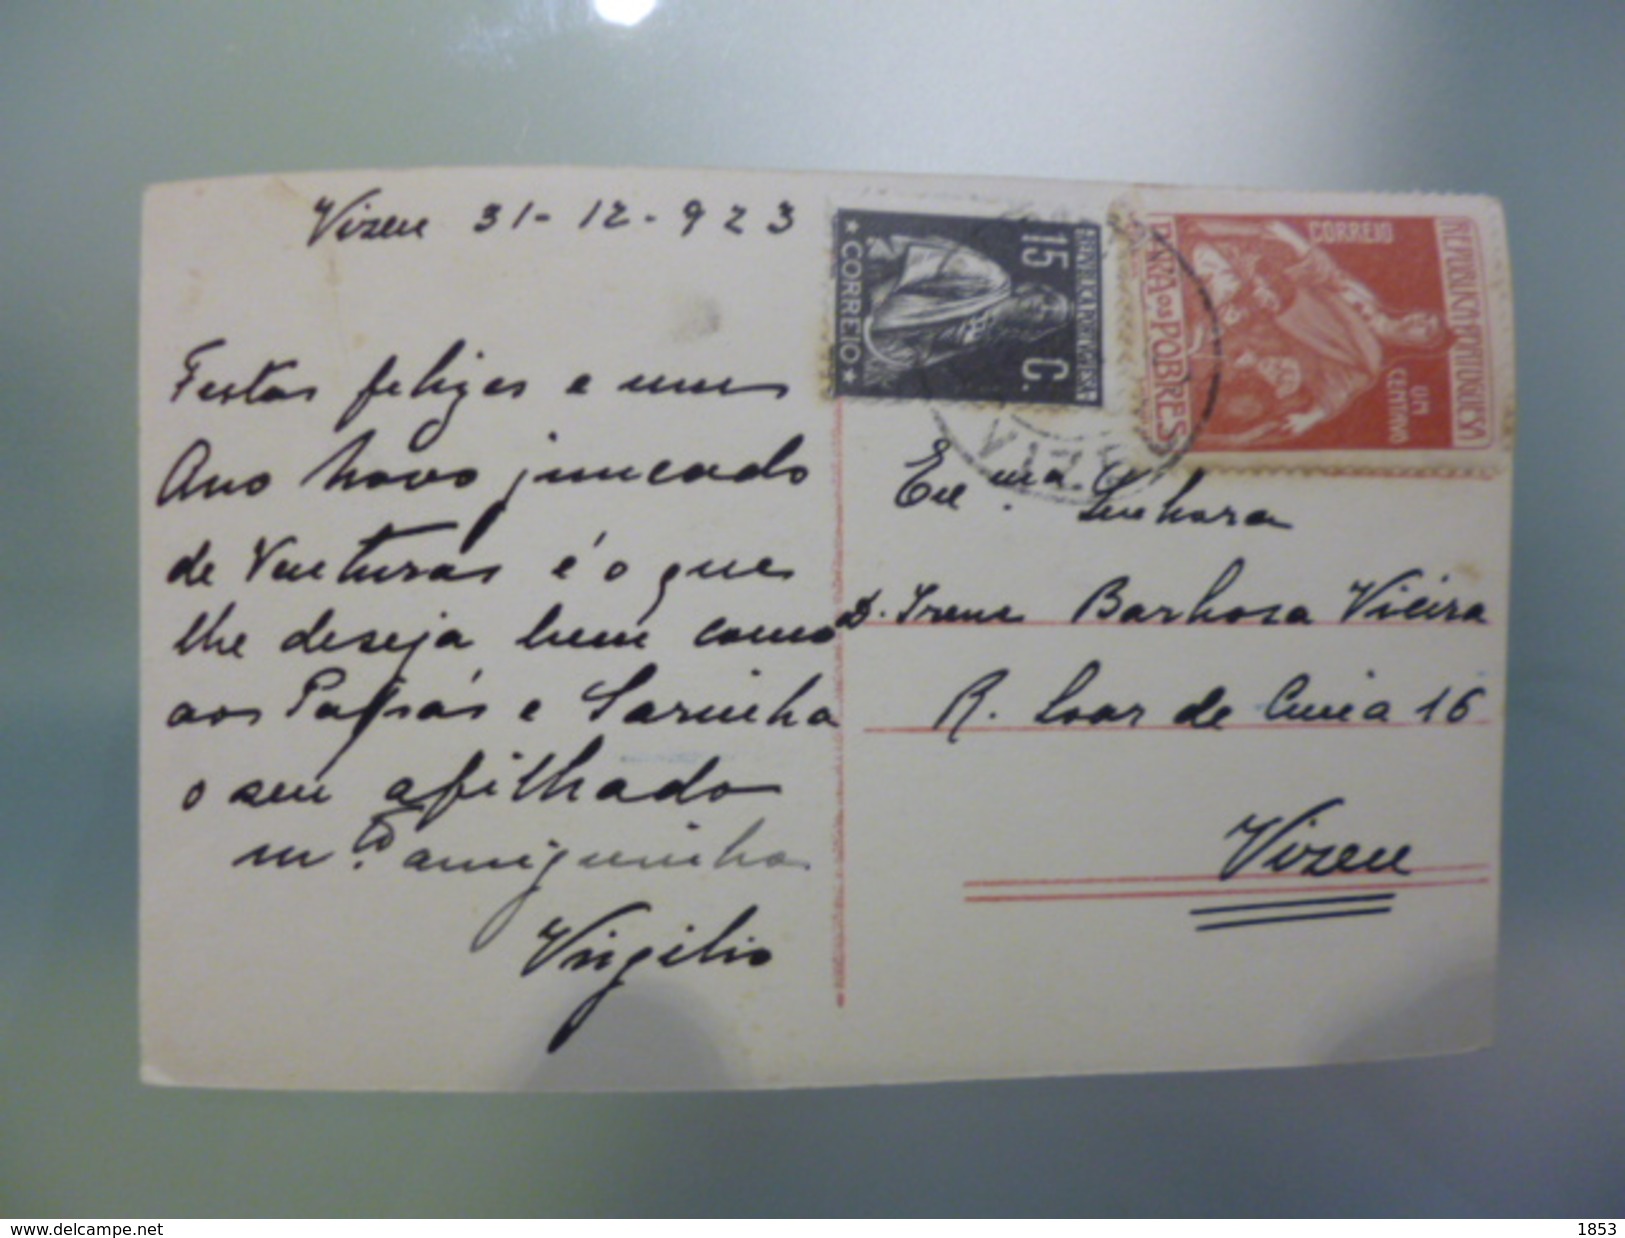 Vizeu 31-12-923
Festas felizes e um
Ano novo juncado
de Venturas é o que
lhe deseja bem como
aos Papás e Sarinha
o seu afilhado
m.to amiguinho
Virgilio
15 C.
* CORREIO *
REPUBLICA PORTUGUESA
CORREIO
PARA OS POBRES
UM
CENTAVO
Ex.ma Senhora
D. Irene Barbosa Vieira
R. Soar de Cima 16
Vizeu
www.delcampe.net
1853